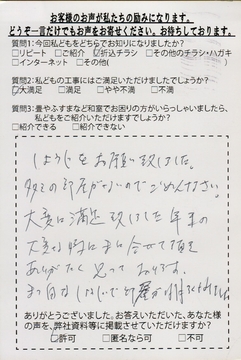 お客様のお声が私たちの励みになります。
どうぞ一言だけでもお声をお寄せください。お待ちしております。
質問1:今回私どもをどちらでお知りになりましたか?
□リピート □ご紹介 ☑折込チラシ □その他のチラシ・ハガキ
□インターネット □その他( )
質問2:私どもの工事にはご満足いただけましたでしょうか?
☑大満足 □満足 □やや不満 □不満
質問3:畳やふすまなど和室でお困りの方がいらっしゃいましたら、
私どもをご紹介いただけますか?
□紹介できる □紹介できない
しょうじをお願い致しました。
ごめんなさい。
大変に満足致しました 年末の
大変な時に 合せて頂き
ありがたく思っております。
まっ白なしょうじで
ありがとうございました。お答えいただいた、あなた様
の声を、弊社資料等に掲載させていただけますか?
☑許可 □匿名なら可 □不可